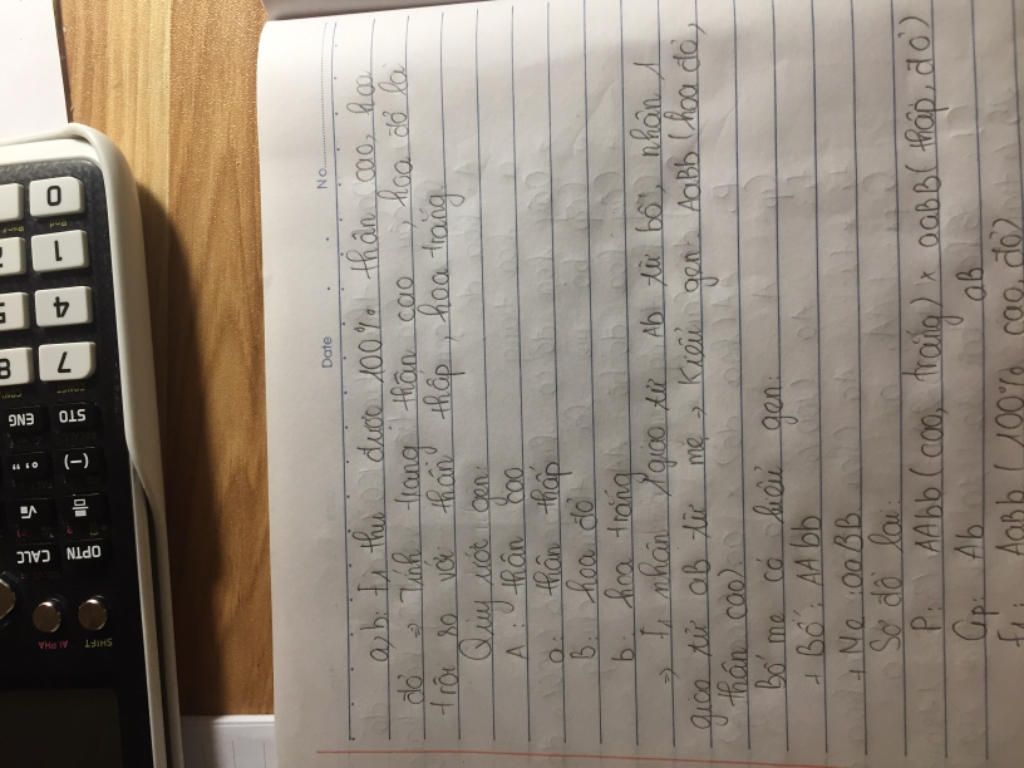 No.
Date
a,b: F₁ thu được 100% thân cao, hoa
đỏ ⇒ Tính trạng thân cao, hoa đỏ là
trội so với thân thấp, hoa trắng
Quy ước gen:
A: thân cao
a: thân thấp
B: hoa đỏ
b: hoa trắng
⇒ F₁ nhân giao tử Ab từ bố, nhân 1
giao tử aB từ mẹ ⇒ Kiểu gen AaBB (hoa đỏ,
thân cao).
Bố mẹ có kiểu gen:
+ Bố: AAbb
+ Mẹ: aaBB
Sơ đồ lai:
P: AAbb (cao, trắng) x aaBB (thấp, đỏ)
Gp: Ab aB
F₁: AaBb (100% cao, đỏ)
0
1
4
7
8
5
2
STO
ENG
(−)
° ' "
√
OPTN
CALC
SHIFT
ALPHA